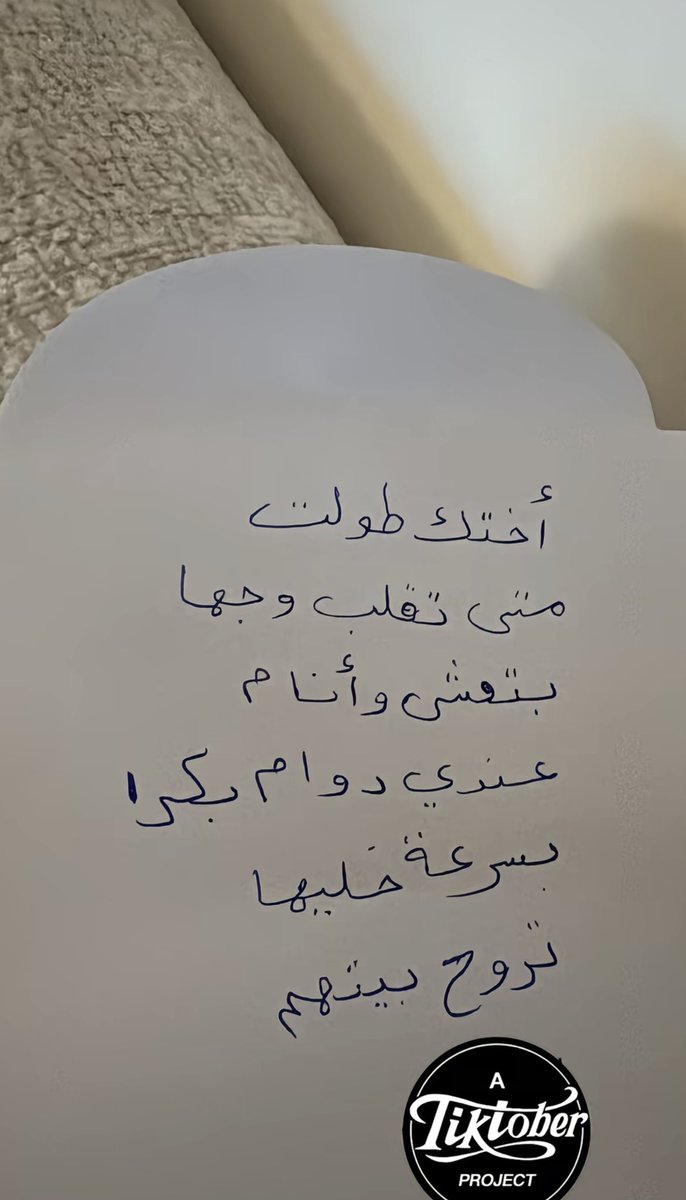 أختك طولت
متى تقلب وجها
بتعشى وأنام
عندي دوام بكرا
بسرعة خليها
تروح بيتهم
A
Tiktober
PROJECT